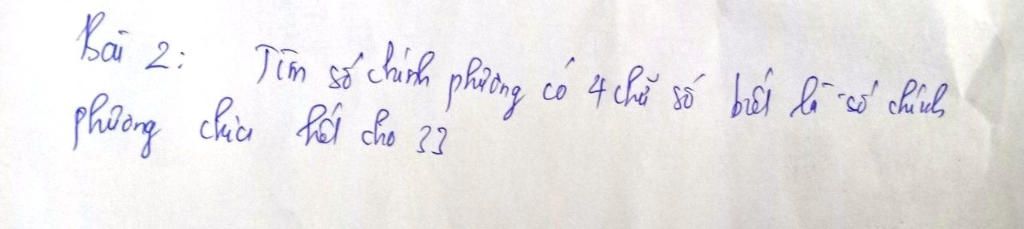 Bài 2: Tìm số chính phương có 4 chữ số biết là số chính
phương chia hết cho 33